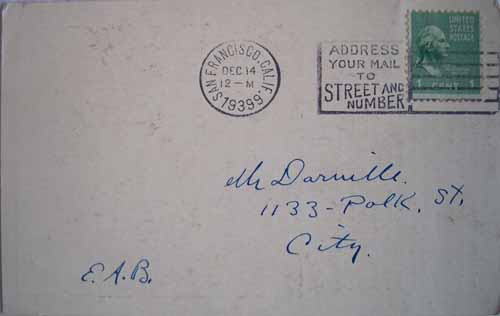 SAN FRANCISCO, CALIF.
DEC 14
12-M
19399
ADDRESS
YOUR MAIL
TO
STREET AND
NUMBER
UNITED
STATES
POSTAGE
1
Mr Darville.
1133-Polk. St.
City.
E.A.B.